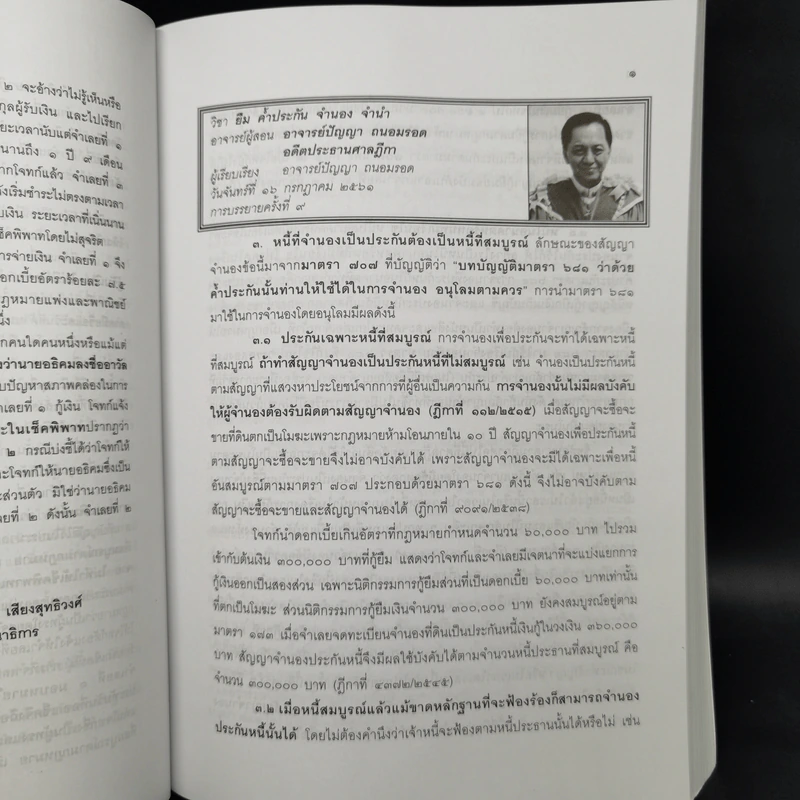 ๒ จะอ้างว่าไม่รู้เห็นหรือ
กุลผู้รับเงิน และไปเรียก
ระยะเวลานับแต่จำเลยที่ ๑
นานถึง ๑ ปี ๙ เดือน
ากโจทก์แล้ว จำเลยที่ ๓
ังเริ่มชำระไม่ตรงตามเวลา
ับเงิน ระยะเวลาที่เนิ่นนาน
เช็คพิพาทโดยไม่สุจริต
การจ่ายเงิน จำเลยที่ ๑ จึง
อกเบี้ยอัตราร้อยละ ๗.๕
กฎหมายแพ่งและพาณิชย์
นึ่ง
กคนใดคนหนึ่งหรือแม้แต่
งว่านายอธิคมลงชื่ออาวัล
บปัญหาสภาพคล่องในการ
ำเลยที่ ๑ กู้เงิน โจทก์แจ้ง
ะในเช็คพิพาทปรากฏว่า
๒ กรณีบ่งชี้ได้ว่าโจทก์ให้
ะโจทก์ให้นายอธิคมซึ่งเป็น
ะส่วนตัว มิใช่ว่านายอธิคม
ลยที่ ๒ ดังนั้น จำเลยที่ ๒
เสียงสุทธิวงศ์
นาธิการ
๑
วิชา ยืม ค้ำประกัน จำนอง จำนำ
อาจารย์ผู้สอน อาจารย์ปัญญา ถนอมรอด
อดีตประธานศาลฎีกา
ผู้เรียบเรียง อาจารย์ปัญญา ถนอมรอด
วันจันทร์ที่ ๑๖ กรกฎาคม ๒๕๖๑
การบรรยายครั้งที่ ๙
๓. หนี้ที่จำนองเป็นประกันต้องเป็นหนี้ที่สมบูรณ์ ลักษณะของสัญญา
จำนองข้อนี้มาจากมาตรา ๗๐๗ ที่บัญญัติว่า “บทบัญญัติมาตรา ๖๘๑ ว่าด้วย
ค้ำประกันนั้นท่านให้ใช้ได้ในการจำนอง อนุโลมตามควร” การนำมาตรา ๖๘๑
มาใช้ในการจำนองโดยอนุโลมมีผลดังนี้
๓.๑ ประกันเฉพาะหนี้ที่สมบูรณ์ การจำนองเพื่อประกันจะทำได้เฉพาะหนี้
ที่สมบูรณ์ ถ้าทำสัญญาจำนองเป็นประกันหนี้ที่ไม่สมบูรณ์ เช่น จำนองเป็นประกันหนี้
ตามสัญญาที่แสวงหาประโยชน์จากการที่ผู้อื่นเป็นความกัน การจำนองนั้นไม่มีผลบังคับ
ให้ผู้จำนองต้องรับผิดตามสัญญาจำนอง (ฎีกาที่ ๑๑๒/๒๕๑๕) เมื่อสัญญาจะซื้อจะ
ขายที่ดินตกเป็นโมฆะเพราะกฎหมายห้ามโอนภายใน ๑๐ ปี สัญญาจำนองเพื่อประกันหนี้
ตามสัญญาจะซื้อจะขายจึงไม่อาจบังคับได้ เพราะสัญญาจำนองจะมีได้เฉพาะเพื่อหนี้
อันสมบูรณ์ตามมาตรา ๗๐๗ ประกอบด้วยมาตรา ๖๘๑ ดังนี้ จึงไม่อาจบังคับตาม
สัญญาจะซื้อจะขายและสัญญาจำนองได้ (ฎีกาที่ ๙๐๙๑/๒๕๓๘)
โจทก์นำดอกเบี้ยเกินอัตราที่กฎหมายกำหนดจำนวน ๖๐,๐๐๐ บาท ไปรวม
เข้ากับต้นเงิน ๓๐๐,๐๐๐ บาทที่กู้ยืม แสดงว่าโจทก์และจำเลยมีเจตนาที่จะแบ่งแยกการ
กู้เงินออกเป็นสองส่วน เฉพาะนิติกรรมการกู้ยืมส่วนที่เป็นดอกเบี้ย ๖๐,๐๐๐ บาทเท่านั้น
ที่ตกเป็นโมฆะ ส่วนนิติกรรมการกู้ยืมเงินจำนวน ๓๐๐,๐๐๐ บาท ยังคงสมบูรณ์อยู่ตาม
มาตรา ๑๗๓ เมื่อจำเลยจดทะเบียนจำนองที่ดินเป็นประกันหนี้เงินกู้ในวงเงิน ๓๖๐,๐๐๐
บาท สัญญาจำนองประกันหนี้จึงมีผลใช้บังคับได้ตามจำนวนหนี้ประธานที่สมบูรณ์ คือ
จำนวน ๓๐๐,๐๐๐ บาท (ฎีกาที่ ๔๓๗๒/๒๕๔๕)
๓.๒ เมื่อหนี้สมบูรณ์แล้วแม้ขาดหลักฐานที่จะฟ้องร้องก็สามารถจำนอง
ประกันหนี้นั้นได้ โดยไม่ต้องคำนึงว่าเจ้าหนี้จะฟ้องตามหนี้ประธานนั้นได้หรือไม่ เช่น